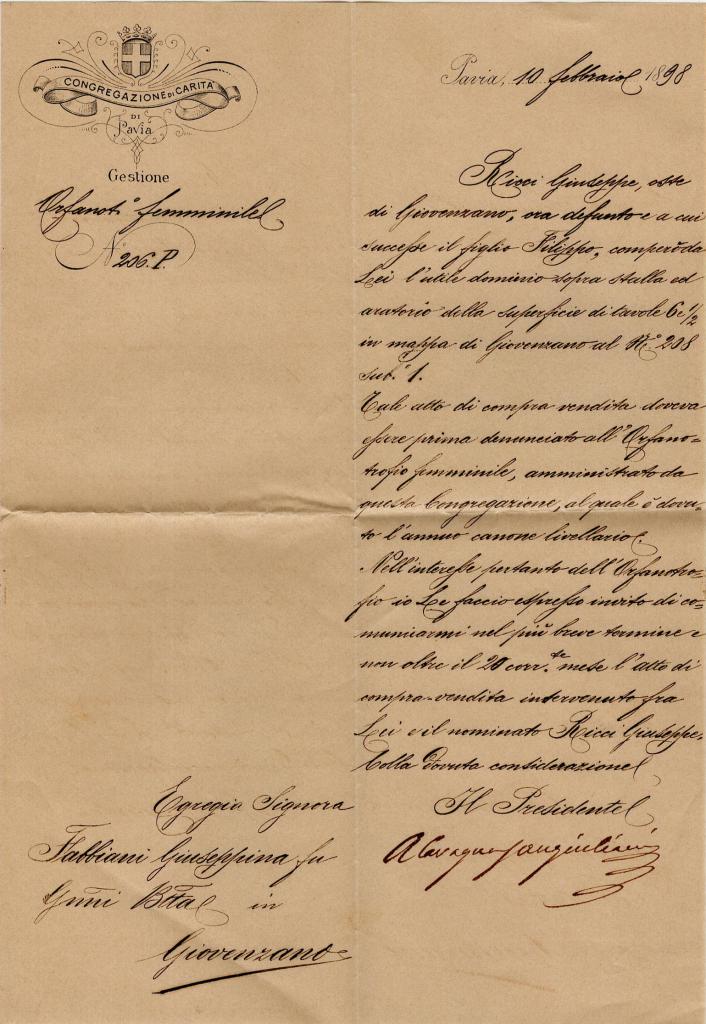 CONGREGAZIONE DI CARITÀ
DI
Pavia
Gestione
Orfanot.º femminile
Nº 206. P.
Pavia, 10 febbraio 1898
Ricci Giuseppe, oste
di Giovenzano, ora defunto e a cui
successe il figlio Filippo, comperò da
Lei l'utile dominio sopra stalla ed
aratorio della superficie di tavole 6 e ½
in mappa di Giovenzano al N.º 208
sub.º 1.
Tale atto di compra vendita doveva
essere prima denunciato all'Orfano=
trofio femminile, amministrato da
questa Congregazione, al quale è dovu=
to l'annuo canone livellario.
Nell'interesse pertanto dell'Orfanotro=
fio io Le faccio espresso invito di co=
municarmi nel più breve termine e
non oltre il 20 corr.te mese l'atto di
compra-vendita intervenuto fra
Lei e il nominato Ricci Giuseppe.
Colla dovuta considerazione
Il Presidente
Egregia Signora
Fabbiani Giuseppina fu
Gio̅ni Btta in
Giovenzano